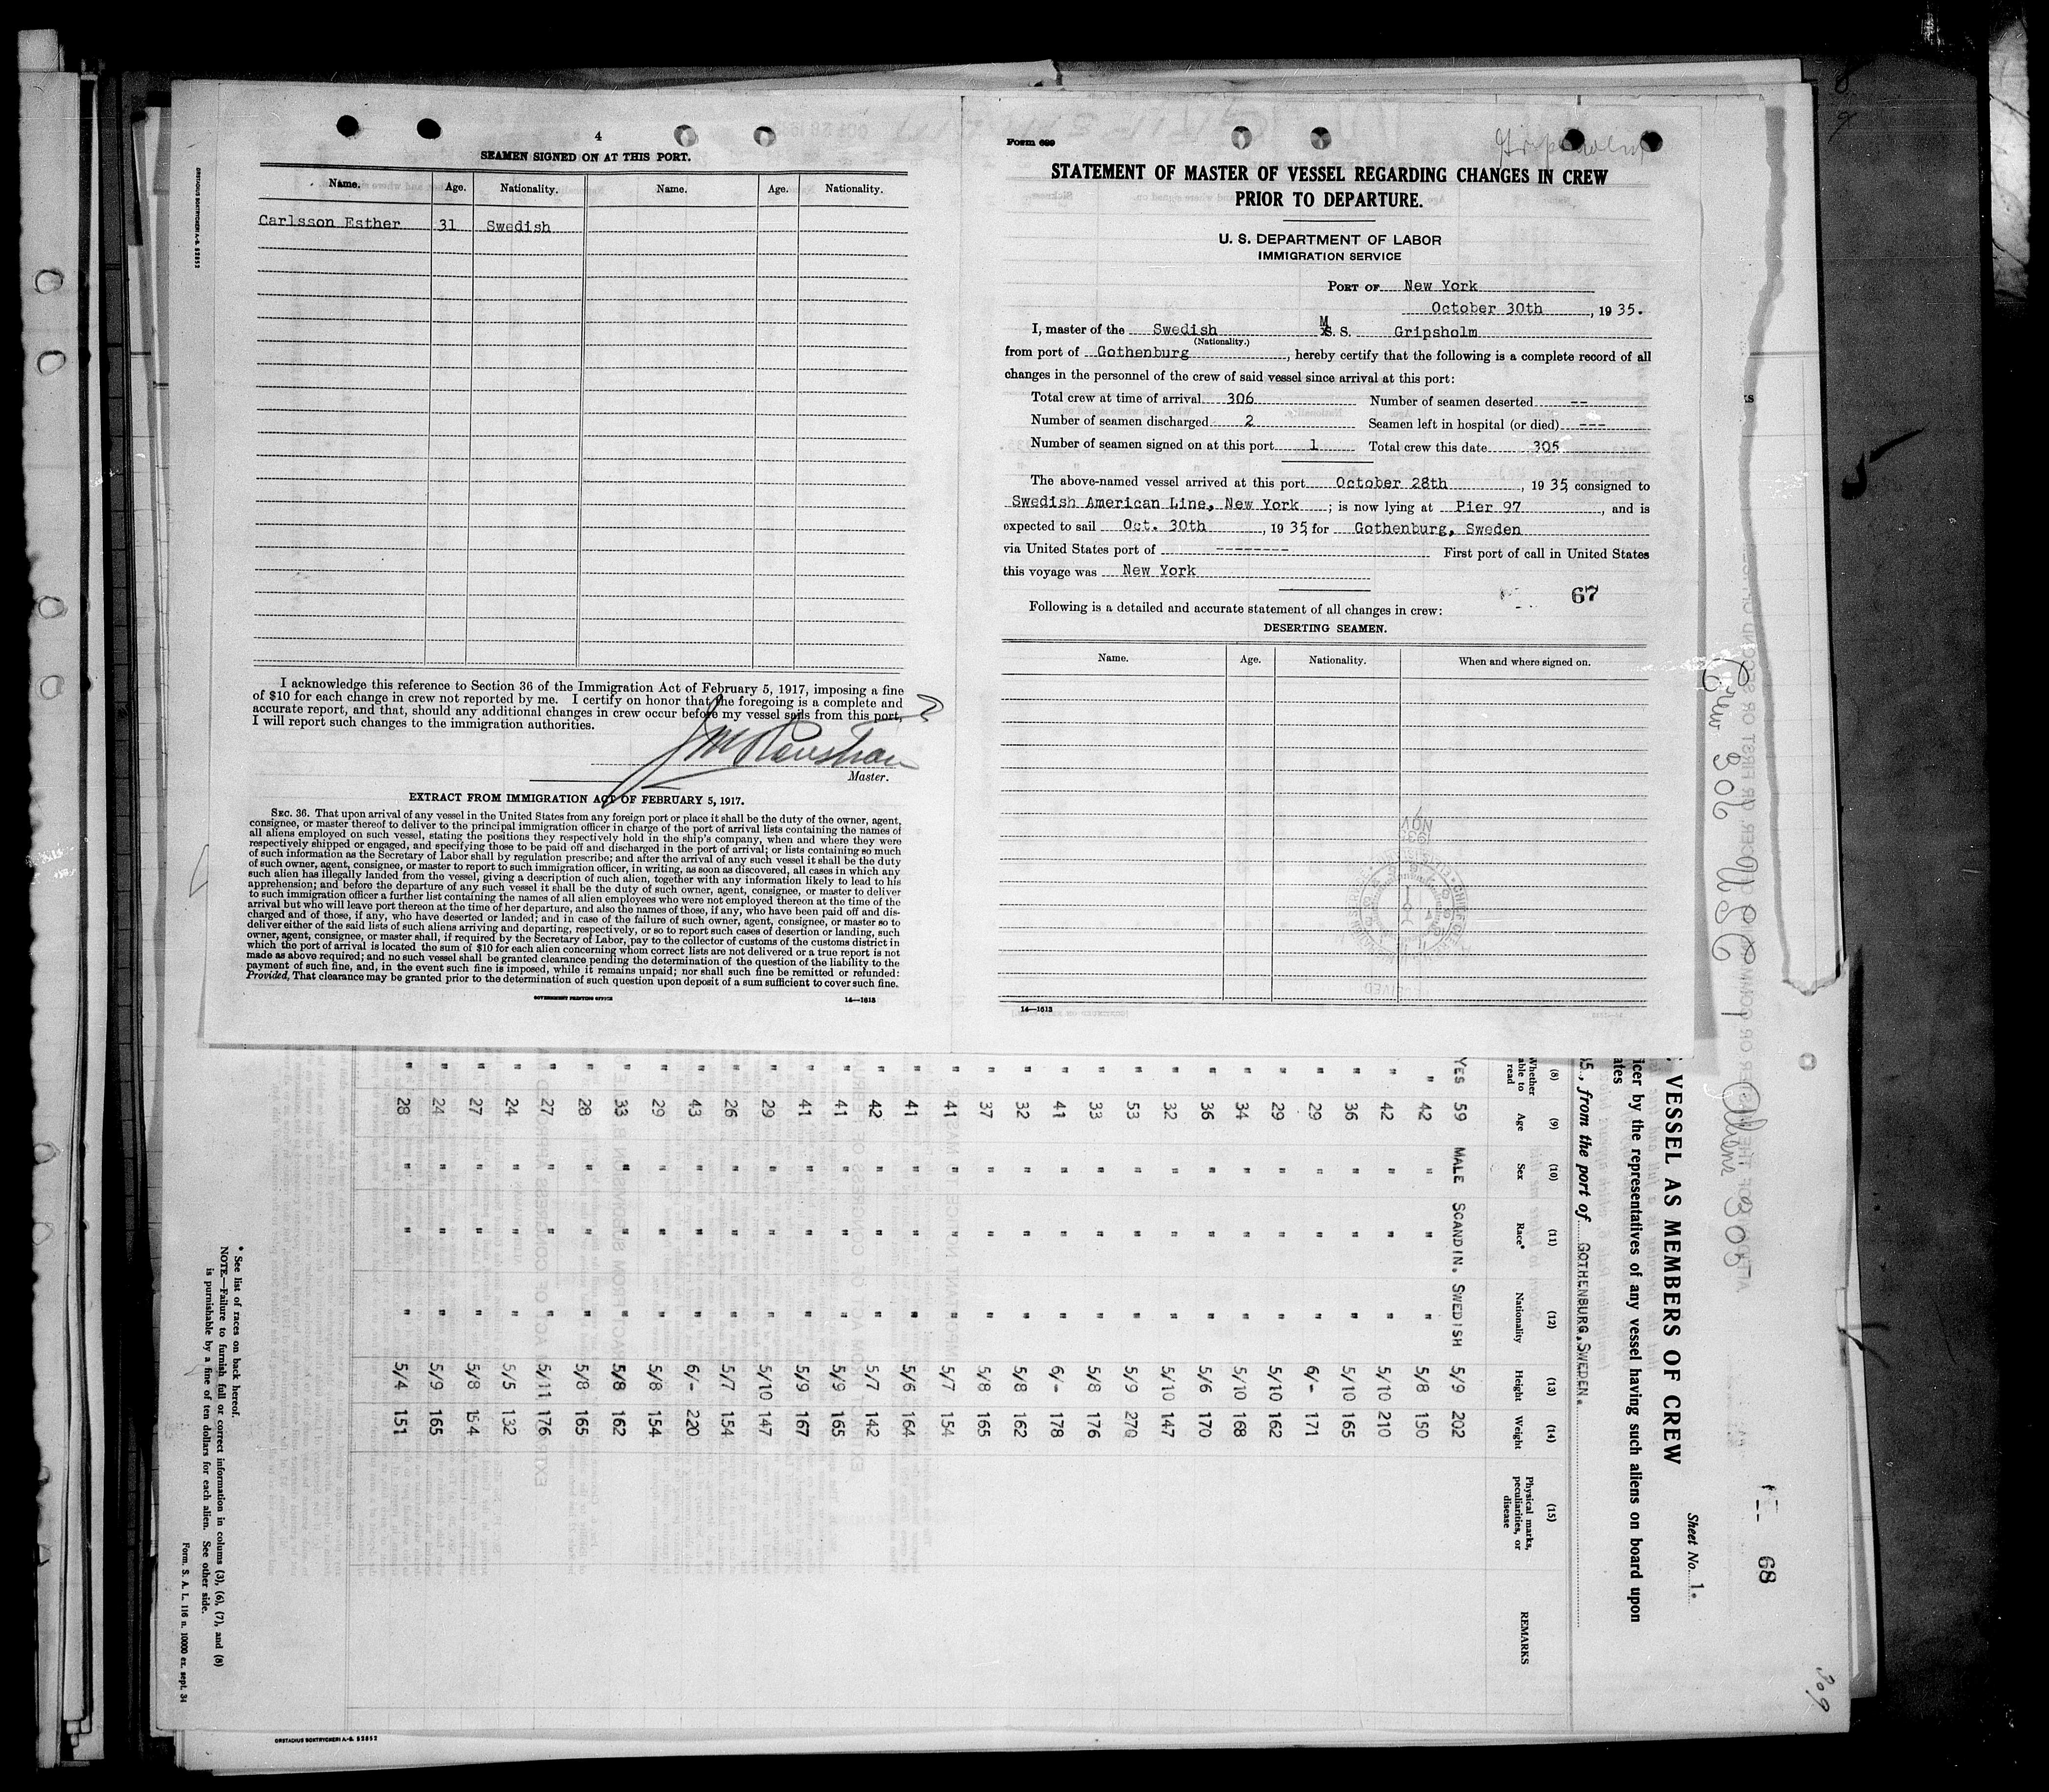 4
SEAMEN SIGNED ON AT THIS PORT.
Name. Age. Nationality. Name. Age. Nationality.
Carlsson Esther 31 Swedish
I acknowledge this reference to Section 36 of the Immigration Act of February 5, 1917, imposing a fine
of $10 for each change in crew not reported by me. I certify on honor that the foregoing is a complete and
accurate report, and that, should any additional changes in crew occur before my vessel sails from this port,
I will report such changes to the immigration authorities.
Master.
EXTRACT FROM IMMIGRATION ACT OF FEBRUARY 5, 1917.
SEC. 36. That upon arrival of any vessel in the United States from any foreign port or place it shall be the duty of the owner, agent,
consignee, or master thereof to deliver to the principal immigration officer in charge of the port of arrival lists containing the names of
all aliens employed on such vessel, stating the positions they respectively hold in the ship's company, when and where they were
respectively shipped or engaged, and specifying those to be paid off and discharged in the port of arrival; or lists containing so much
of such information as the Secretary of Labor shall by regulation prescribe; and after the arrival of any such vessel it shall be the duty
of such owner, agent, consignee, or master to report to such immigration officer, in writing, as soon as discovered, all cases in which any
such alien has illegally landed from the vessel, giving a description of such alien, together with any information likely to lead to his
apprehension; and before the departure of any such vessel it shall be the duty of such owner, agent, consignee, or master to deliver
to such immigration officer a further list containing the names of all alien employees who were not employed thereon at the time of the
arrival but who will leave port thereon at the time of her departure, and also the names of those, if any, who have been paid off and dis-
charged and of those, if any, who have deserted or landed; and in case of the failure of such owner, agent, consignee, or master so to
deliver either of the said lists of such aliens arriving and departing, respectively, or so to report such cases of desertion or landing, such
owner, agent, consignee, or master shall, if required by the Secretary of Labor, pay to the collector of customs of the customs district in
which the port of arrival is located the sum of $10 for each alien concerning whom correct lists are not delivered or a true report is not
made as above required; and no such vessel shall be granted clearance pending the determination of the question of the liability to the
payment of such fine, and, in the event such fine is imposed, while it remains unpaid; nor shall such fine be remitted or refunded:
Provided, That clearance may be granted prior to the determination of such question upon deposit of a sum sufficient to cover such fine.
GOVERNMENT PRINTING OFFICE 14—1613
Form 689
Gripsholm
STATEMENT OF MASTER OF VESSEL REGARDING CHANGES IN CREW
PRIOR TO DEPARTURE.
U. S. DEPARTMENT OF LABOR
IMMIGRATION SERVICE
PORT OF New York
October 30th, 1935.
I, master of the Swedish M S. S. Gripsholm
(Nationality.)
from port of Gothenburg, hereby certify that the following is a complete record of all
changes in the personnel of the crew of said vessel since arrival at this port:
Total crew at time of arrival 306 Number of seamen deserted --
Number of seamen discharged 2 Seamen left in hospital (or died) ---
Number of seamen signed on at this port 1 Total crew this date 305
The above-named vessel arrived at this port October 28th, 1935, consigned to
Swedish American Line, New York; is now lying at Pier 97, and is
expected to sail Oct. 30th, 1935, for Gothenburg, Sweden
via United States port of -------- First port of call in United States
this voyage was New York
67
Following is a detailed and accurate statement of all changes in crew:
DESERTING SEAMEN.
Name. Age. Nationality. When and where signed on.
14—1613
Crew 306 USC 1
Aliens 305
68
Sheet No. 1.
VESSEL AS MEMBERS OF CREW
icer by the representatives of any vessel having such aliens on board upon
5., from the port of GOTHENBURG, SWEDEN.
(8) Whether able to read (9) Age (10) Sex (11) Race* (12) Nationality (13) Height (14) Weight (15) Physical marks, peculiarities, or disease REMARKS
YES 59 MALE SCANDIN. SWEDISH 5/9 202
" 42 " " " 5/8 150
" 42 " " " 5/10 210
" 36 " " " 5/10 165
" 29 " " " 6/- 171
" 29 " " " 5/10 162
" 34 " " " 5/10 168
" 36 " " " 5/6 170
" 32 " " " 5/10 147
" 53 " " " 5/9 270
" 33 " " " 5/8 176
" 41 " " " 6/- 178
" 32 " " " 5/8 162
" 37 " " " 5/8 165
" 41 " " " 5/7 154
" 41 " " " 5/6 164
" 42 " " " 5/7 142
" 41 " " " 5/9 165
" 41 " " " 5/9 167
" 29 " " " 5/10 147
" 26 " " " 5/7 154
" 43 " " " 6/- 220
" 29 " " " 5/8 154
" 33 " " " 5/8 162
" 28 " " " 5/8 165
" 27 " " " 5/11 176
" 24 " " " 5/5 132
" 27 " " " 5/8 154
" 24 " " " 5/9 165
" 28 " " " 5/4 151
* See list of races on back hereof.
NOTE.—Failure to furnish full or correct information in colums (3), (6), (7), and (8)
is purnishable by a fine of ten dollars for each alien. See other side.
Form. S. A. L. 116 n. 10000 ex. sept. 34
309
ORSTADIUS BOKTRYCKERI A.-B. 52852